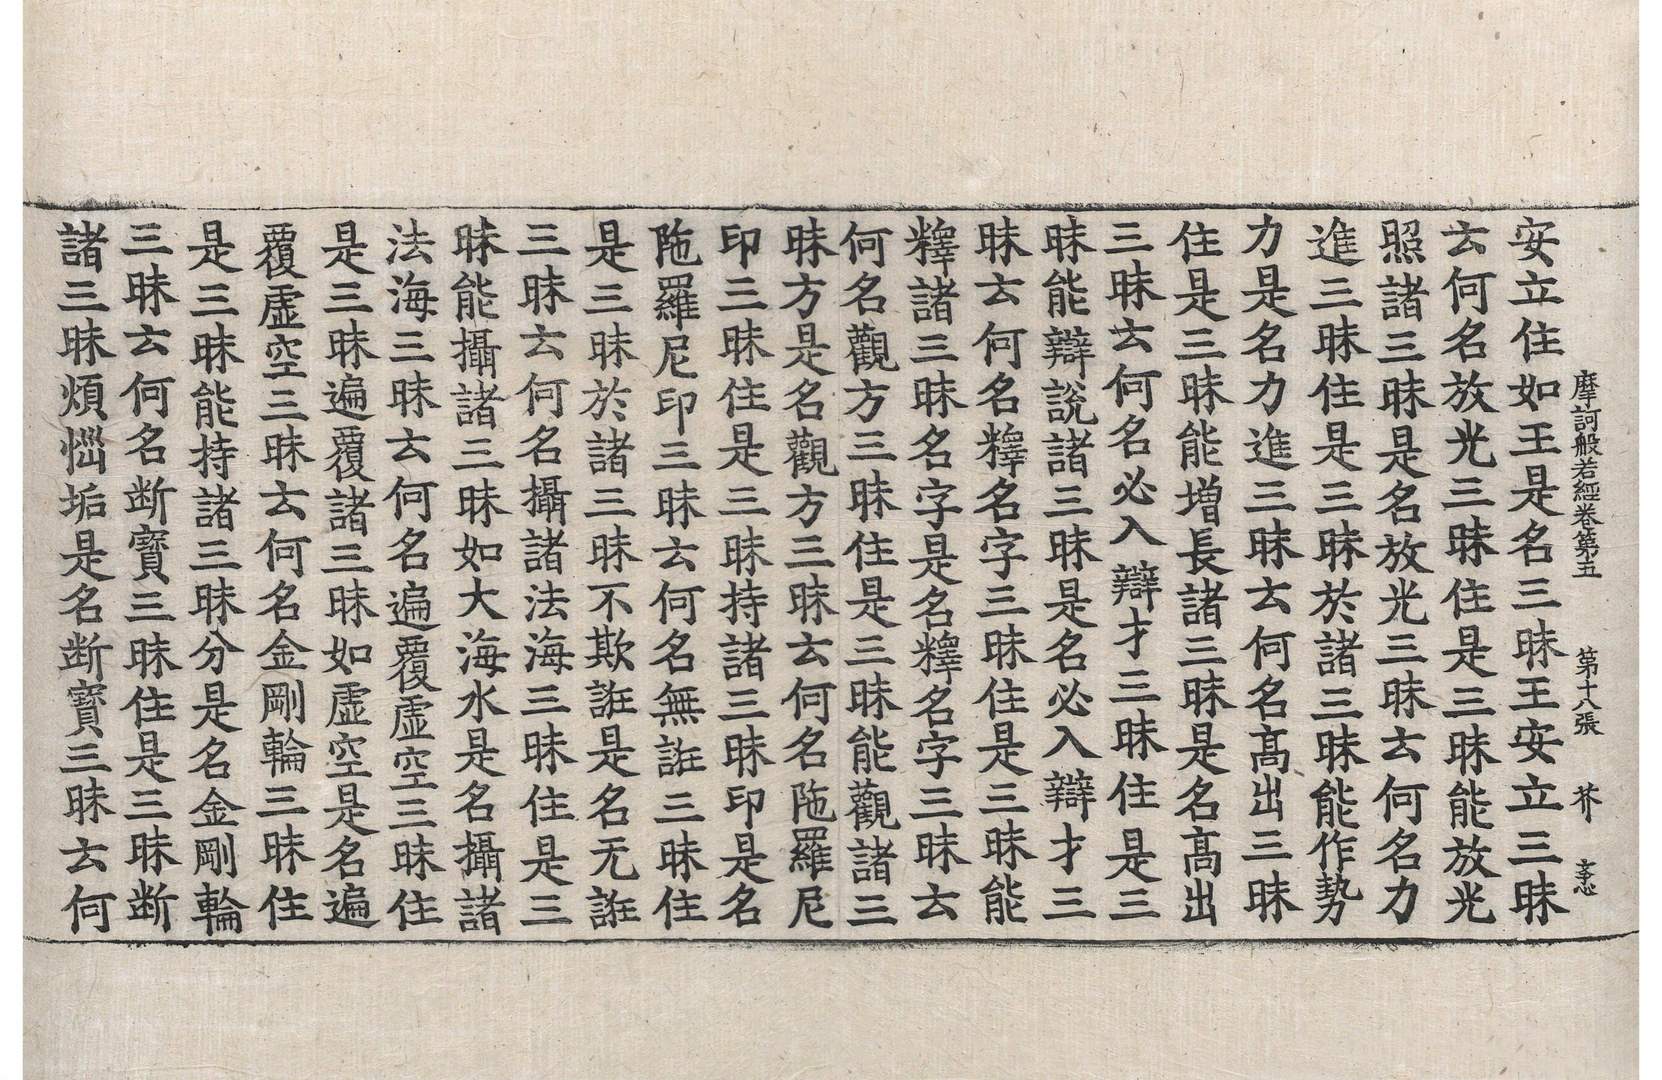 摩訶般若經卷第五　第十八張　芥
安立住如王是名三昧王安立三昧
去何名放光三昧住是三昧能放光
照諸三昧是名放光三昧去何名力
進三昧住是三昧於諸三昧能作勢
力是名力進三昧去何名髙出三昧
住是三昧能增長諸三昧是名髙出
三昧去何名必入辯才三昧住是三
昧能辯說諸三昧是名必入辯才三
昧去何名釋名字三昧住是三昧能
釋諸三昧名字是名釋名字三昧去
何名觀方三昧住是三昧能觀諸三
昧方是名觀方三昧去何名陁羅尼
印三昧住是三昧持諸三昧印是名
陁羅尼印三昧去何名無誑三昧住
是三昧於諸三昧不欺誑是名无誑
三昧去何名攝諸法海三昧住是三
昧能攝諸三昧如大海水是名攝諸
法海三昧去何名遍覆虛空三昧住
是三昧遍覆諸三昧如虛空是名遍
覆虛空三昧去何名金剛輪三昧住
是三昧能持諸三昧分是名金剛輪
三昧去何名断寶三昧住是三昧断
諸三昧煩惱垢是名断寶三昧去何